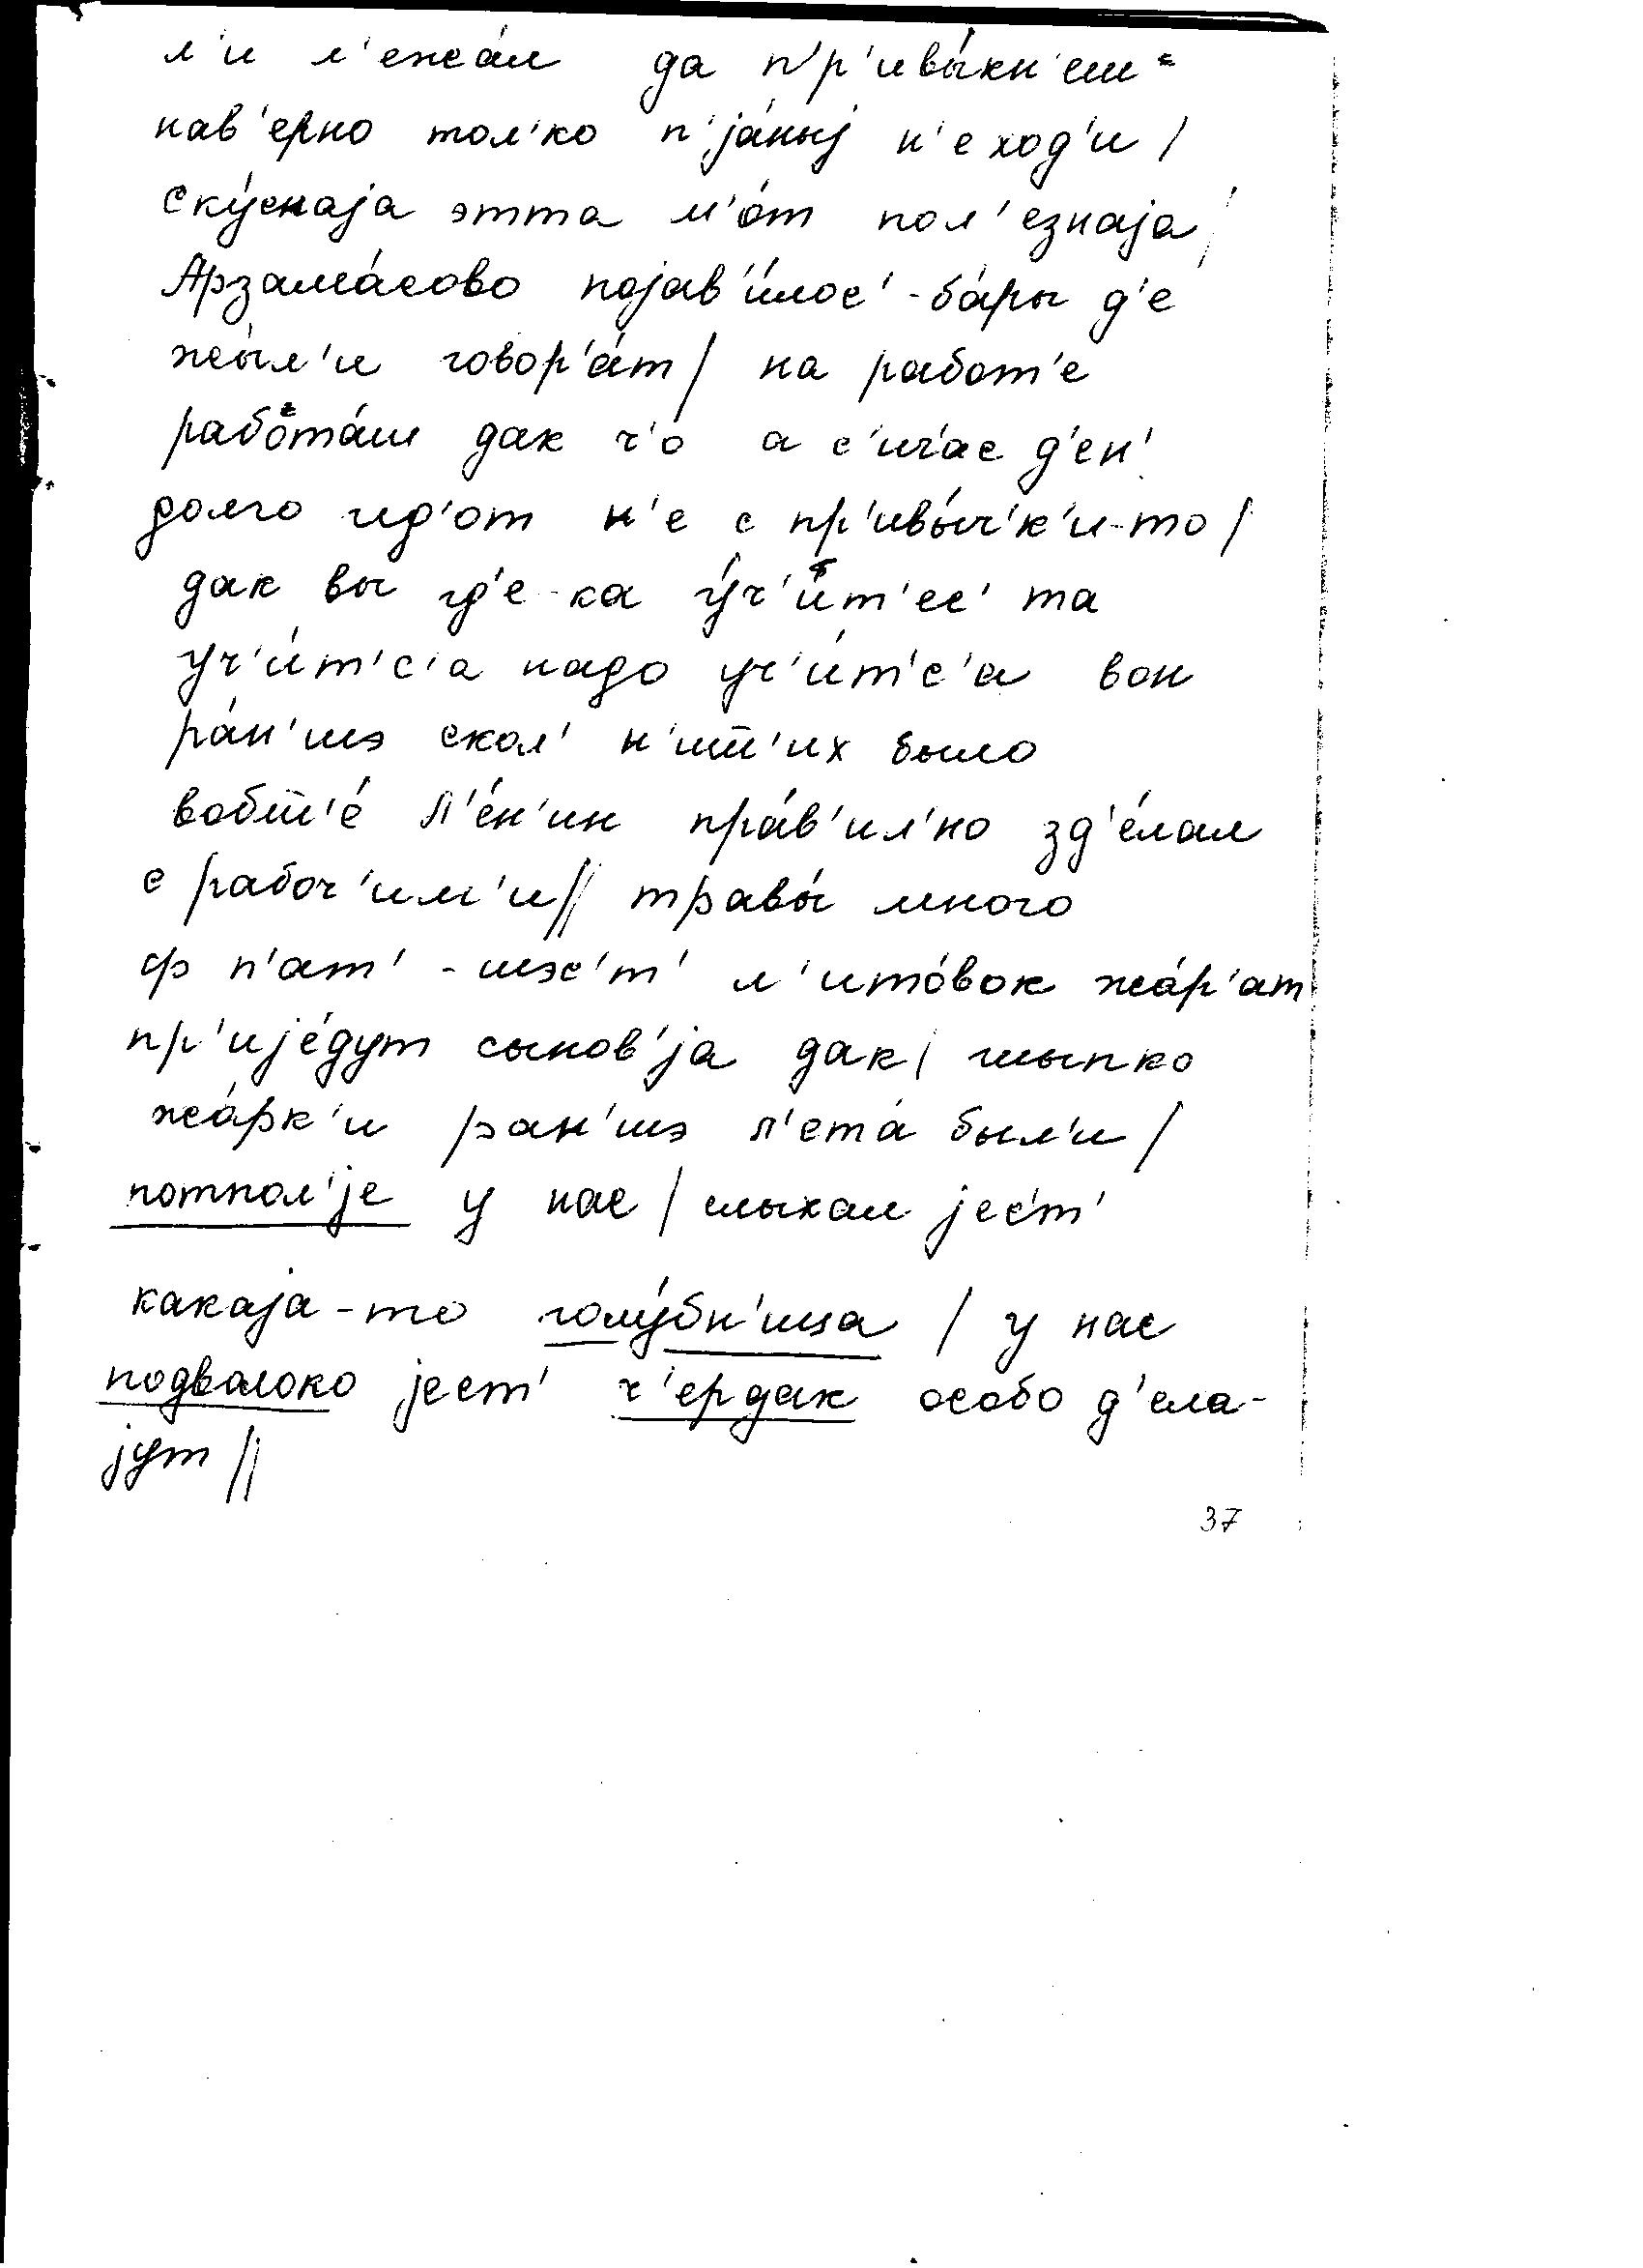 л'и л'ежа́л да п'р'ивы́кн'еш
нав'ерно тол'ко п'jа́ныj н'е ход'и /
ску́снаjа этта м'о́т пол'езнаjа /
Арзама́сово поjав'и́лос' - ба́ры д'е
жы́л'и говор'а́т / на работ'е
работа́ш дак ч'о́ а с'ич'ас д'ен'
долго ид'от н'е с пр'ивы́ч'к'и-то /
дак вы гд'е-ка у́ч'и́т'ес' та
уч'и́т'с'а надо уч'и́т'с'а вон
ра́н'шэ скол' н'ишт'их было
вобш'е́ Л'е́н'ин пра́в'ил'но зд'е́лал
с рабоч'им'и // травы́ много
ф п'ат' - шэс'т' л'ито́вок жа́р'ат
пр'иjе́дут сынов'jа дак / шыпко
жа́рк'и ран'шэ л'ета́ был'и /
потпол'jе у нас / слыхал jес'т'
какаjа-то голу́бн'ица / у нас
подволоко jест' ч'ердак особо д'ела-
jут //
37